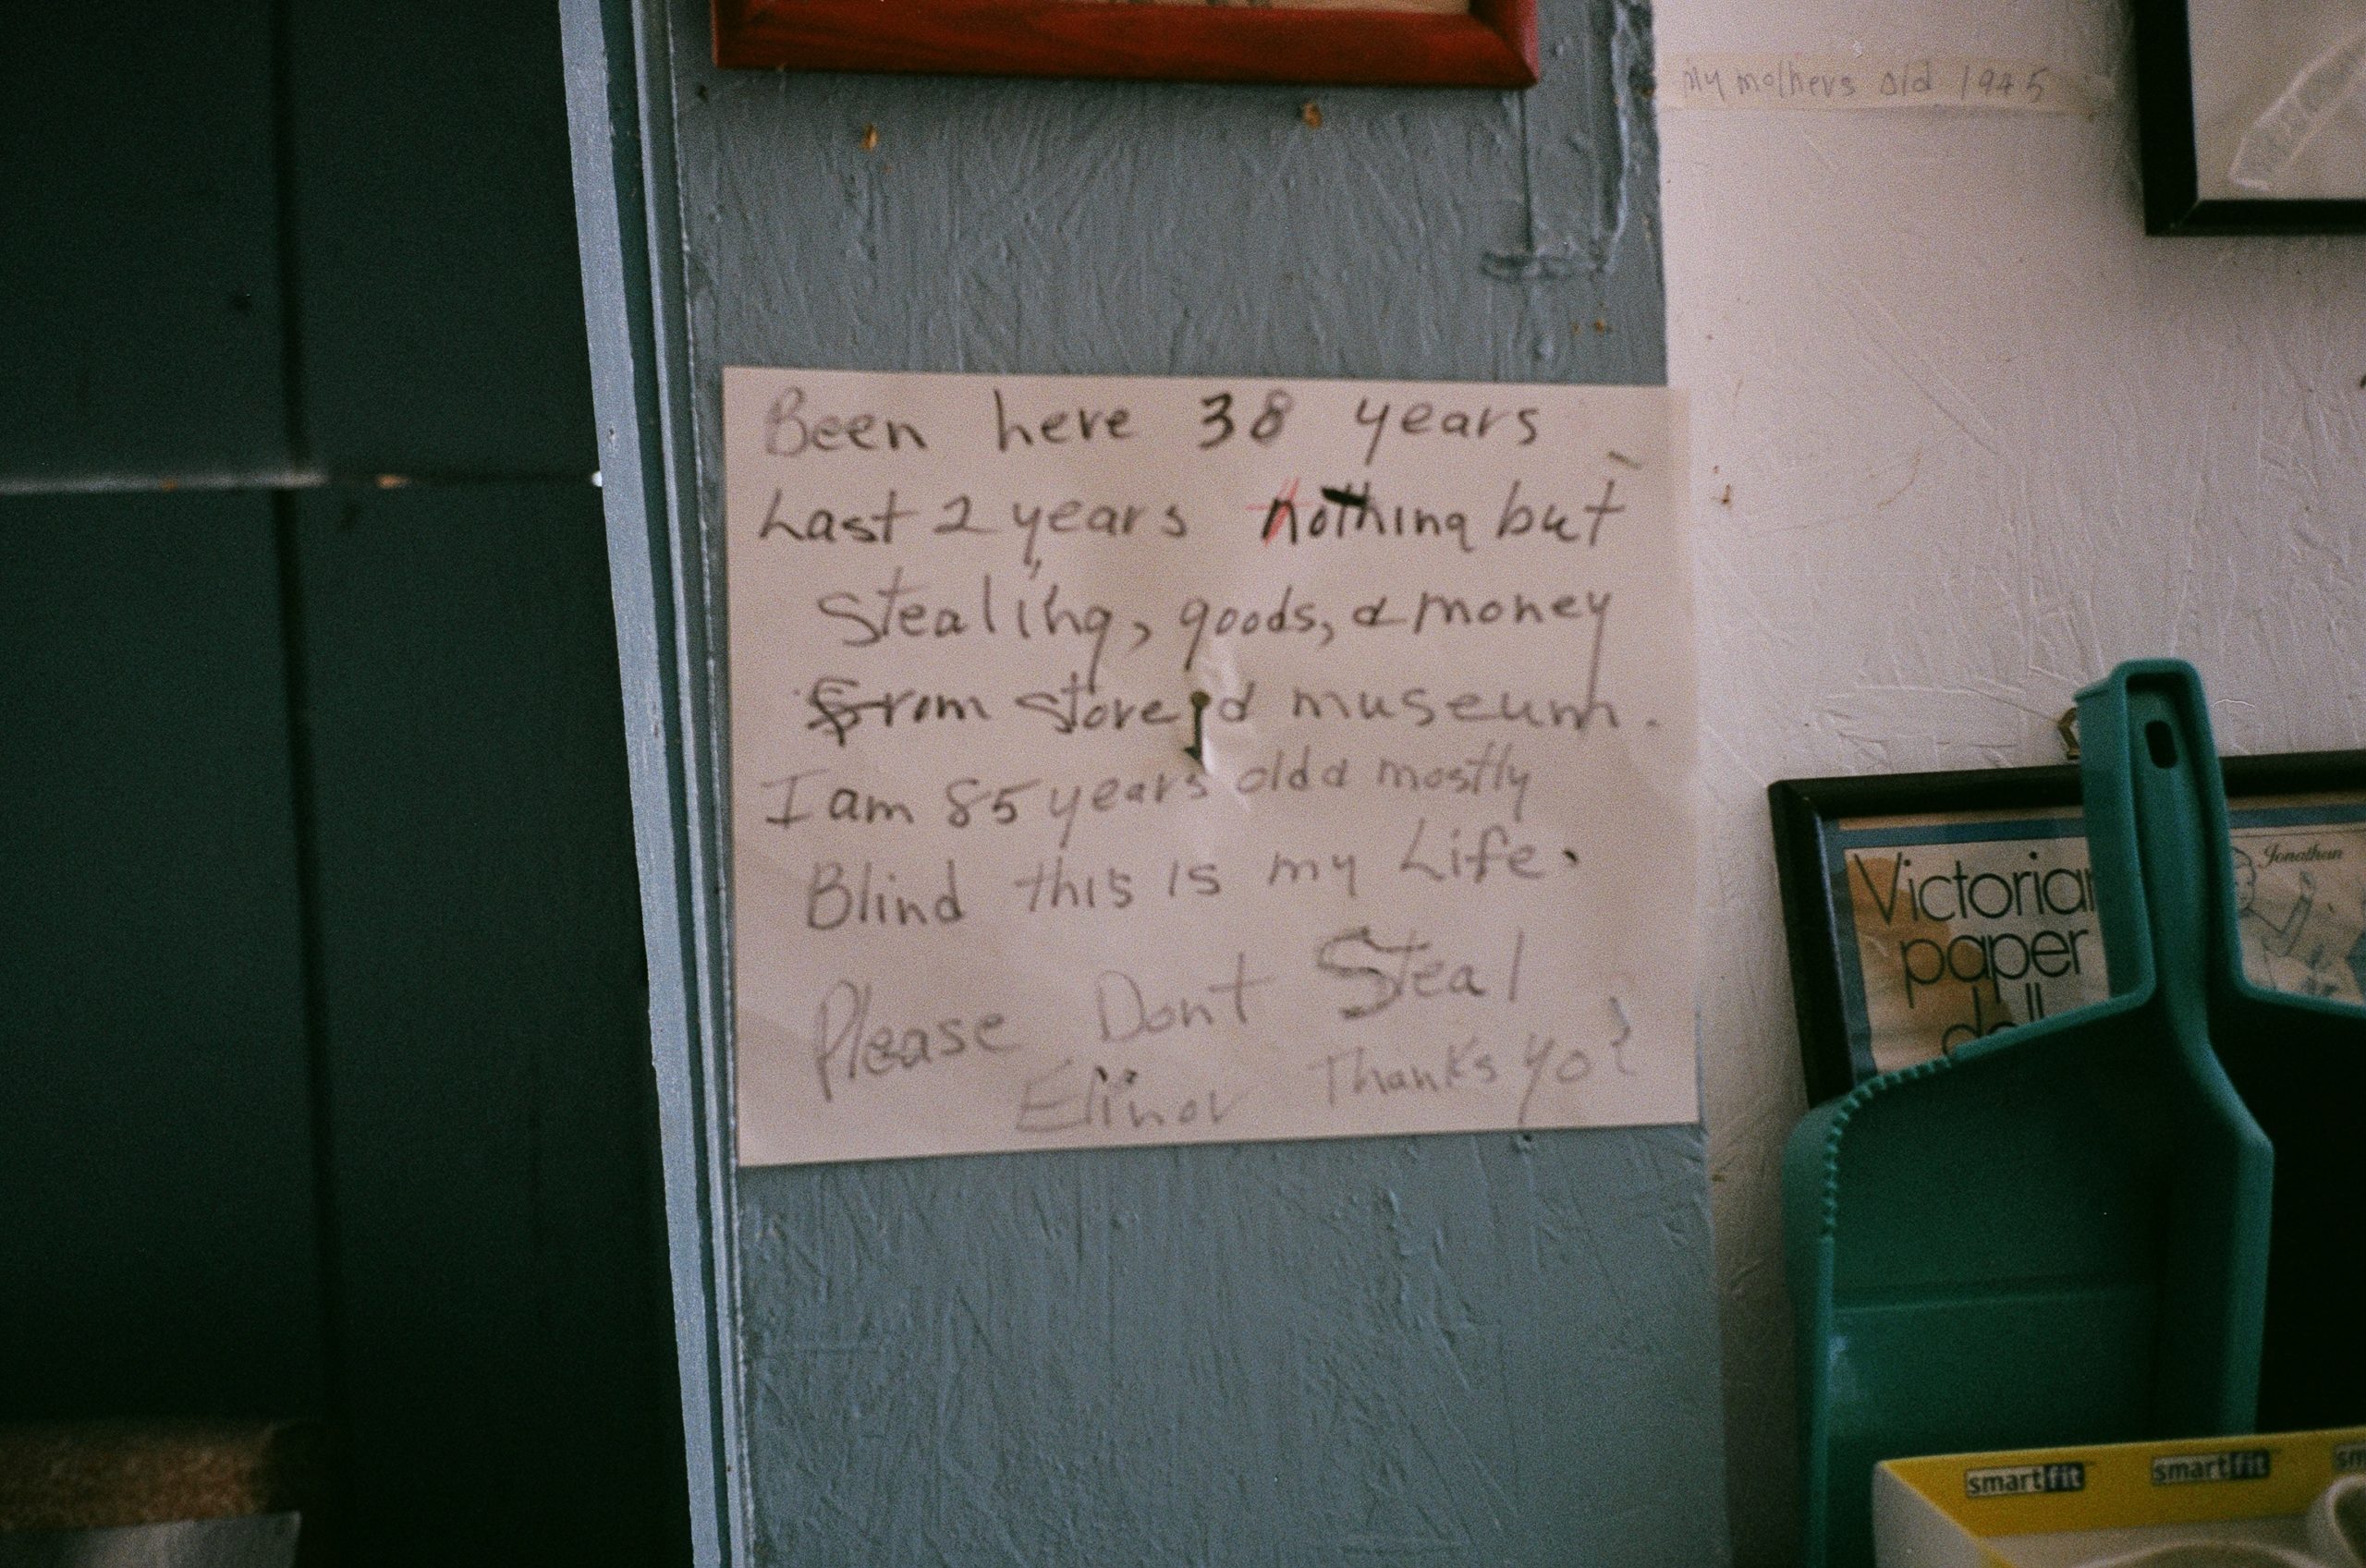 My mothers old 1945
Been here 38 years
Last 2 years nothing but
Stealing, goods, & money
From store & museum.
I am 85 years old & mostly
Blind this is my Life.
Please Dont Steal
Elinor Thanks yo
Victorian
paper
doll
Jonathan
smartfit smartfit sm